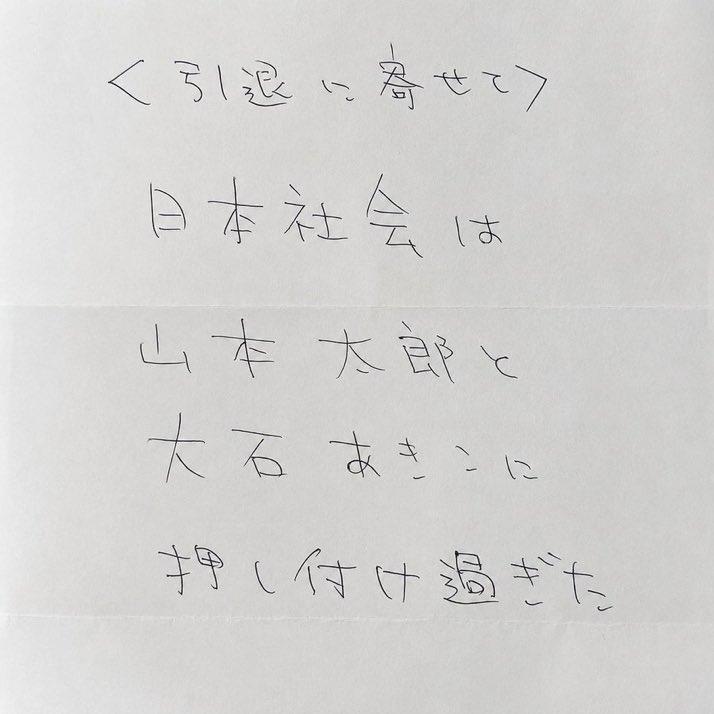 <引退に寄せて>
日本社会は
山本太郎と
大石あきこに
押し付け過ぎた